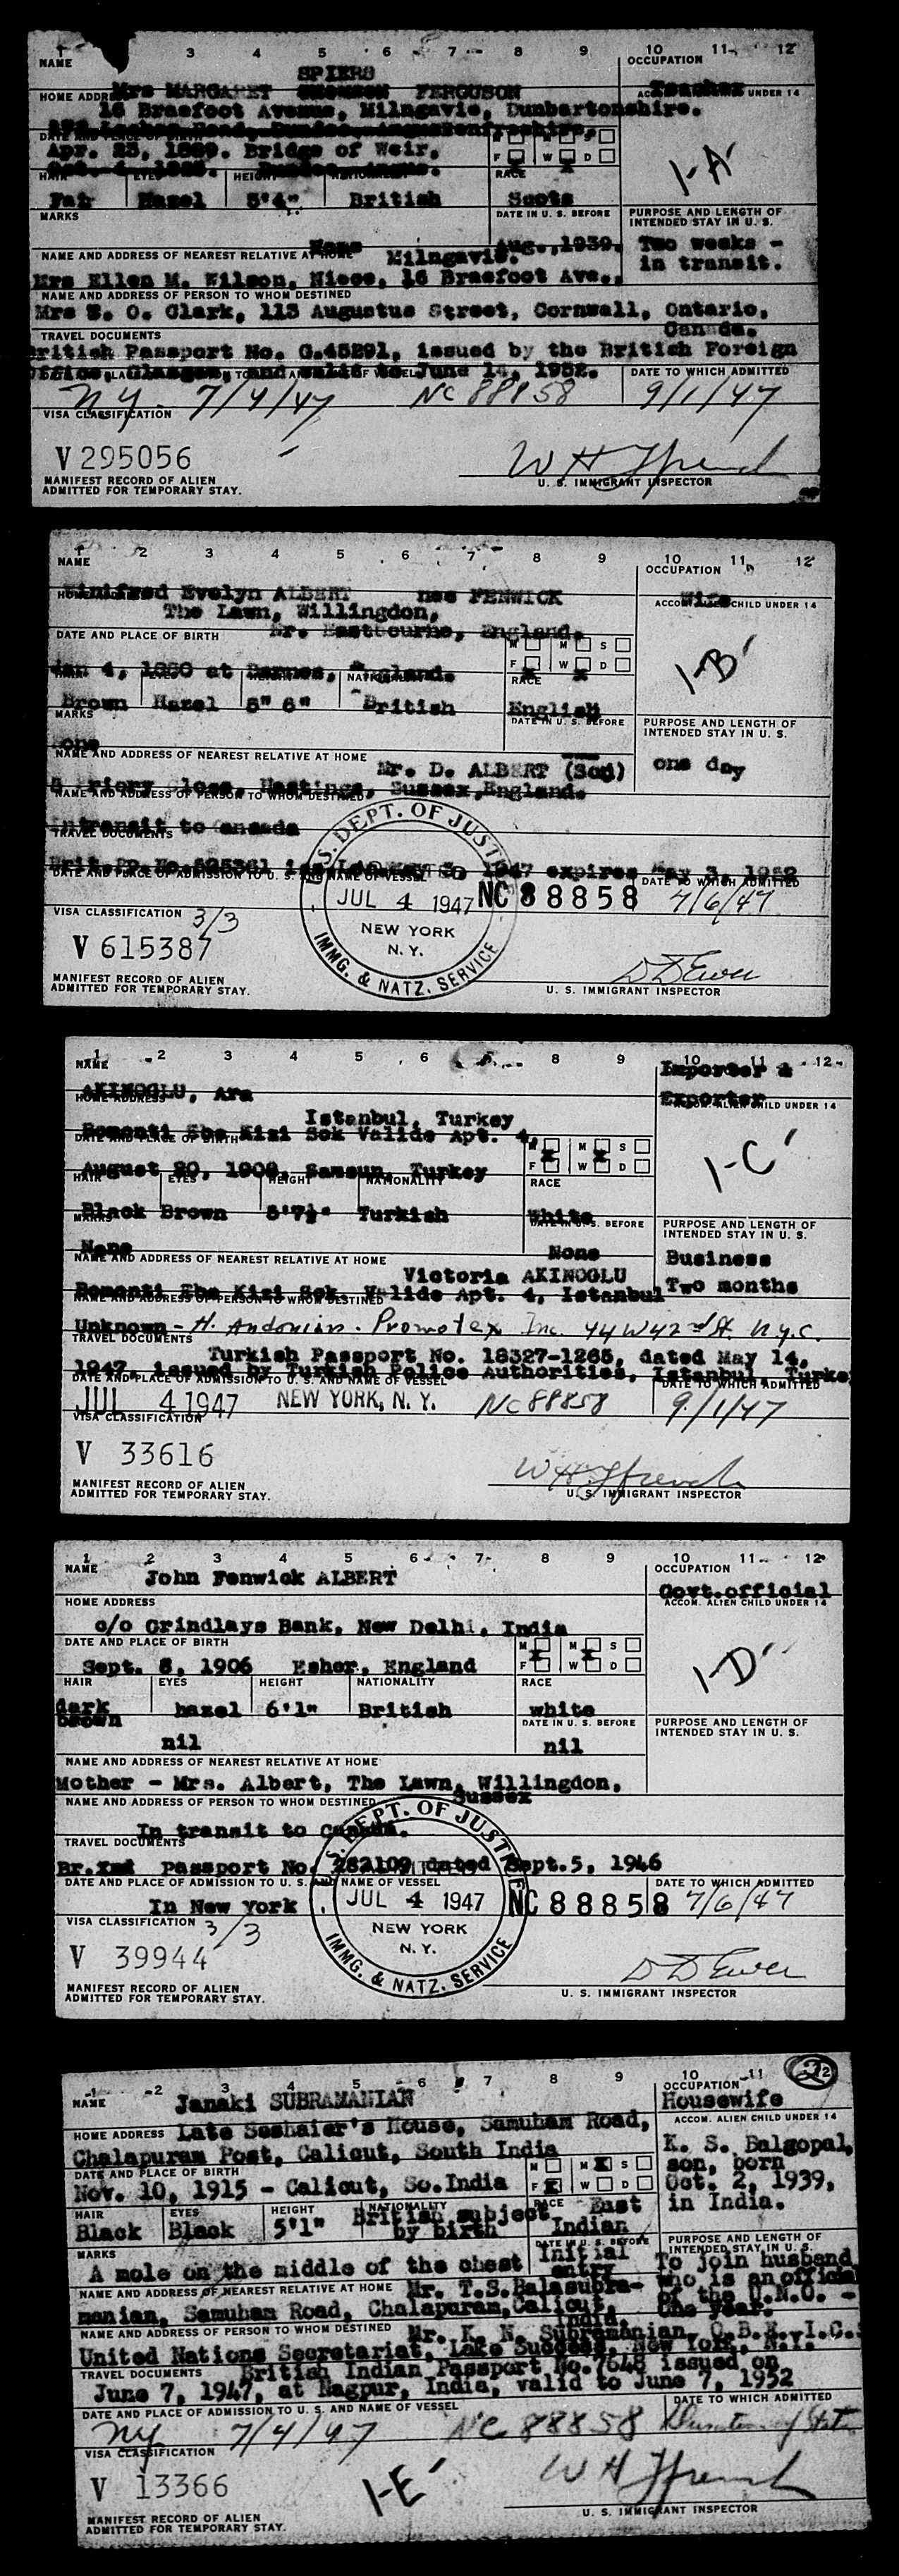 1 3 4 5 6 7 8 9 10 11 12
NAME OCCUPATION
SPIERS
Mrs MARGARET FERGUSON Teacher
HOME ADDRE UNDER 14
16 Braefoot Avenue, Milngavie, Dunbartonshire.
Apr. 23, 1889. Bridge of Weir.
F W D
HAIR EYES HEIGHT RACE
Fair Hazel 5'4" British Scots
1-A
MARKS DATE IN U. S. BEFORE PURPOSE AND LENGTH OF INTENDED STAY IN U. S.
None Aug., 1939. Two weeks -
NAME AND ADDRESS OF NEAREST RELATIVE AT HOME Milngavie. in transit.
Mrs Ellen M. Wilson, Niece, 16 Braefoot Ave.,
NAME AND ADDRESS OF PERSON TO WHOM DESTINED
Mrs O. Clark, 113 Augustus Street, Cornwall, Ontario,
Canada.
TRAVEL DOCUMENTS
British Passport No. issued by the British Foreign
Office, Glasgow, and valid to June 14, 1952. DATE TO WHICH ADMITTED
NY 7/4/47 NC 88858 9/1/47
VISA CLASSIFICATION
V 295056
W H Ffrench
MANIFEST RECORD OF ALIEN U. S. IMMIGRANT INSPECTOR
ADMITTED FOR TEMPORARY STAY.
1 2 3 4 5 6 7 8 9 10 11 12
NAME OCCUPATION
Winifred Evelyn ALBERT nee FENWICK Wife
ACCOM. ALIEN CHILD UNDER 14
The Lawn, Willingdon,
DATE AND PLACE OF BIRTH Nr. Eastbourne, England.
M M S
F W D
Jan 4, at Barnes, England.
RACE
Brown Hazel 5" 6" British English
1-B
MARKS DATE IN U. S. BEFORE PURPOSE AND LENGTH OF INTENDED STAY IN U. S.
one
NAME AND ADDRESS OF NEAREST RELATIVE AT HOME
Mr. D. ALBERT (Son) one day
Priory close, Hastings, Sussex, England.
NAME AND ADDRESS OF PERSON TO WHOM DESTINED
intransit to canada
TRAVEL DOCUMENTS
1947 expires May 3, 1952
DATE AND PLACE OF ADMISSION TO U. S. AND NAME OF VESSEL DATE TO WHICH ADMITTED
U.S. DEPT. OF JUSTICE
JUL 4 1947
NEW YORK
N. Y.
IMMG. & NATZ. SERVICE
NC 88858 7/6/47
VISA CLASSIFICATION 3/3
V 615387
D D Ewer
MANIFEST RECORD OF ALIEN U. S. IMMIGRANT INSPECTOR
ADMITTED FOR TEMPORARY STAY.
1 2 3 4 5 6 8 9 10 11 12
NAME Importer &
AKINOGLU, Ara Exporter
HOME ADDRESS ACCOM. ALIEN CHILD UNDER 14
Istanbul, Turkey
Bomonti Ebe Kizi Sok Valide Apt. 4,
DATE AND PLACE OF BIRTH
M M S
F W D
August 20, 1909, Samsun, Turkey
HAIR EYES HEIGHT NATIONALITY RACE
Black Brown 5'7½" Turkish White
1-C
MARKS DATE IN U. S. BEFORE PURPOSE AND LENGTH OF INTENDED STAY IN U. S.
None None
NAME AND ADDRESS OF NEAREST RELATIVE AT HOME Business
Victoria AKINOGLU Two months
Bomonti Ebe Kizi Sok. Valide Apt. 4, Istanbul
NAME AND ADDRESS OF PERSON TO WHOM DESTINED
Unknown - H. Andonian - Promotex Inc. 44 W 42nd St. N.y.C.
TRAVEL DOCUMENTS
Turkish Passport No. 18327-1265, dated May 14,
1947, issued by Turkish Police Authorities, Istanbul, Turke
DATE AND PLACE OF ADMISSION TO U. S. AND NAME OF VESSEL DATE TO WHICH ADMITTED
JUL 4 1947 NEW YORK, N. Y. NC 88858 9/1/47
VISA CLASSIFICATION
V 33616
W H Ffrench
MANIFEST RECORD OF ALIEN U. S. IMMIGRANT INSPECTOR
ADMITTED FOR TEMPORARY STAY.
1 2 3 4 5 6 7 8 9 10 11 12
NAME OCCUPATION
John Fenwick ALBERT Govt.official
HOME ADDRESS ACCOM. ALIEN CHILD UNDER 14
c/o Grindlays Bank, New Delhi, India
DATE AND PLACE OF BIRTH
M M S
F W D
Sept. 8, 1906 Esher, England
HAIR EYES HEIGHT NATIONALITY RACE
dark brown hazel 6'1" British white
1-D
DATE IN U. S. BEFORE PURPOSE AND LENGTH OF INTENDED STAY IN U. S.
nil nil
NAME AND ADDRESS OF NEAREST RELATIVE AT HOME
Mother - Mrs. Albert, The Lawn, Willingdon,
Sussex
NAME AND ADDRESS OF PERSON TO WHOM DESTINED
In transit to Canada.
TRAVEL DOCUMENTS
Br.Ind Passport No. 282109 dated Sept.5, 1946
DATE AND PLACE OF ADMISSION TO U. S. AND NAME OF VESSEL DATE TO WHICH ADMITTED
In New York
U.S. DEPT. OF JUSTICE
JUL 4 1947
NEW YORK
N. Y.
IMMG. & NATZ. SERVICE
NC 88858 7/6/47
VISA CLASSIFICATION 3/3
V 39944
D D Ewer
MANIFEST RECORD OF ALIEN U. S. IMMIGRANT INSPECTOR
ADMITTED FOR TEMPORARY STAY.
1 2 3 4 5 6 7 8 9 10 11 22
NAME OCCUPATION
Janaki SUBRAMANIAN Housewife
HOME ADDRESS Late Seshaier's House, Samuham Road, ACCOM. ALIEN CHILD UNDER 14
Chalapuram Post, Calicut, South India K. S. Balgopal,
DATE AND PLACE OF BIRTH son, born
M M S
F W D
Nov. 10, 1915 - Calicut, So.India Oct. 2, 1939,
in India.
HAIR EYES HEIGHT NATIONALITY RACE
Black Black 5'1" British subject by birth East Indian
MARKS DATE IN U. S. BEFORE PURPOSE AND LENGTH OF INTENDED STAY IN U. S.
A mole on the middle of the chest Initial entry To join husband
who is an official
of the U.N.O. -
One year.
NAME AND ADDRESS OF NEAREST RELATIVE AT HOME Mr. T.S.Balasubra-
manian, Samuham Road, Chalapuram, Calicut,
India.
NAME AND ADDRESS OF PERSON TO WHOM DESTINED Mr. K. N. Subramanian, O.B.E., I.C.S
United Nations Secretariat, Lake Success, New York, N.Y.
TRAVEL DOCUMENTS British Indian Passport No.7648 issued on
June 7, 1947, at Nagpur, India, valid to June 7, 1952
DATE AND PLACE OF ADMISSION TO U. S. AND NAME OF VESSEL DATE TO WHICH ADMITTED
NY 7/4/47 NC 88858 Duration of Stat
VISA CLASSIFICATION
V 13366
1-E
W H Ffrench
MANIFEST RECORD OF ALIEN U. S. IMMIGRANT INSPECTOR
ADMITTED FOR TEMPORARY STAY.